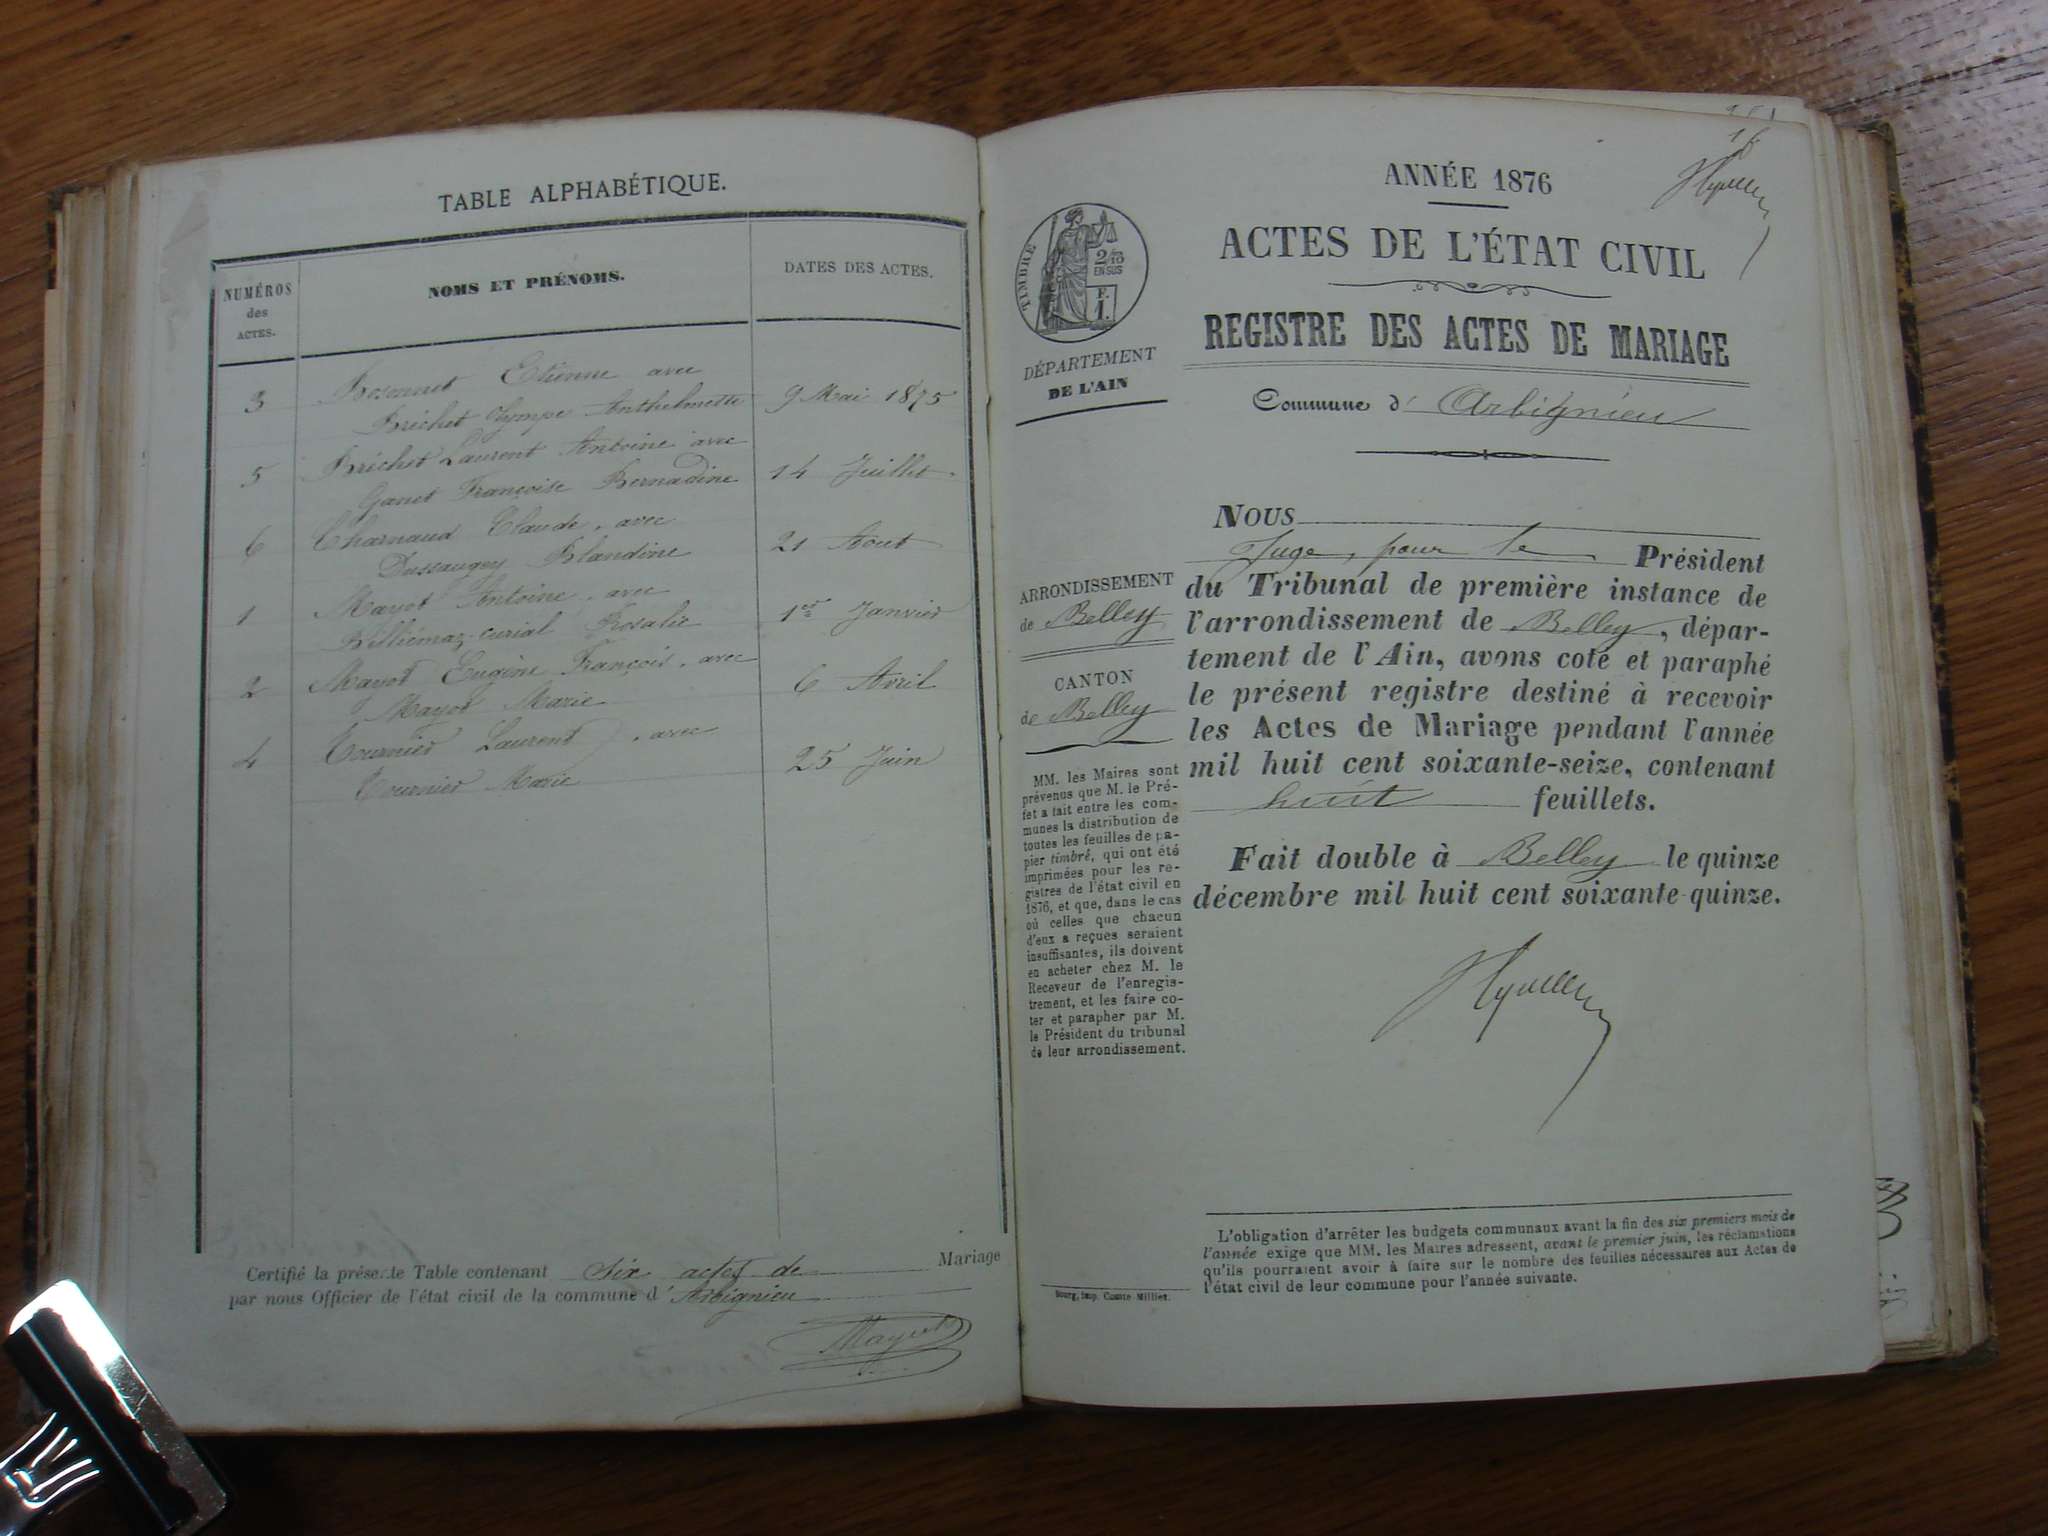 TABLE ALPHABÉTIQUE.
NUMÉROS
des
ACTES.
NOMS ET PRÉNOMS.
DATES DES ACTES.
3 Etienne avec
Bréchet Olympe Anthelmette 9 Mai 1875
5 Bréchet Laurent Antoine avec
Ganet Françoise Bernadine 14 Juillet
6 Charnaud Claude, avec
Dussaugey Blandine 21 Aout
1 Mayot Antoine, avec
Billiémaz-curial Rosalie 1er Janvier
2 Mayot Eugène François, avec
Mayot Marie 6 Avril
4 Tournier Laurent, avec
Tournier Marie 25 Juin
Certifié la présente Table contenant six actes de Mariage
par nous Officier de l'état civil de la commune d'Arbignieu
ANNÉE 1876
ACTES DE L'ÉTAT CIVIL
REGISTRE DES ACTES DE MARIAGE
Commune d'Arbignieu
TIMBRE
2/10
EN SUS
F.
1.
DÉPARTEMENT
DE L'AIN
ARRONDISSEMENT
de Belley
CANTON
de Belley
MM. les Maires sont
prévenus que M. le Pré-
fet a fait entre les com-
munes la distribution de
toutes les feuilles de pa-
pier timbré, qui ont été
imprimées pour les re-
gistres de l'état civil en
1876, et que, dans le cas
où celles que chacun
d'eux a reçues seraient
insuffisantes, ils doivent
en acheter chez M. le
Receveur de l'enregis-
trement, et les faire co-
ter et parapher par M.
le Président du tribunal
de leur arrondissement.
Bourg, imp. Comte-Milliet.
NOUS
Juge, pour le Président
du Tribunal de première instance de
l'arrondissement de Belley, dépar-
tement de l'Ain, avons coté et paraphé
le présent registre destiné à recevoir
les Actes de Mariage pendant l'année
mil huit cent soixante-seize, contenant
huit feuillets.
Fait double à Belley le quinze
décembre mil huit cent soixante-quinze.
L'obligation d'arrêter les budgets communaux avant la fin des six premiers mois de
l'année exige que MM. les Maires adressent, avant le premier juin, les réclamations
qu'ils pourraient avoir à faire sur le nombre des feuilles nécessaires aux Actes de
l'état civil de leur commune pour l'année suivante.